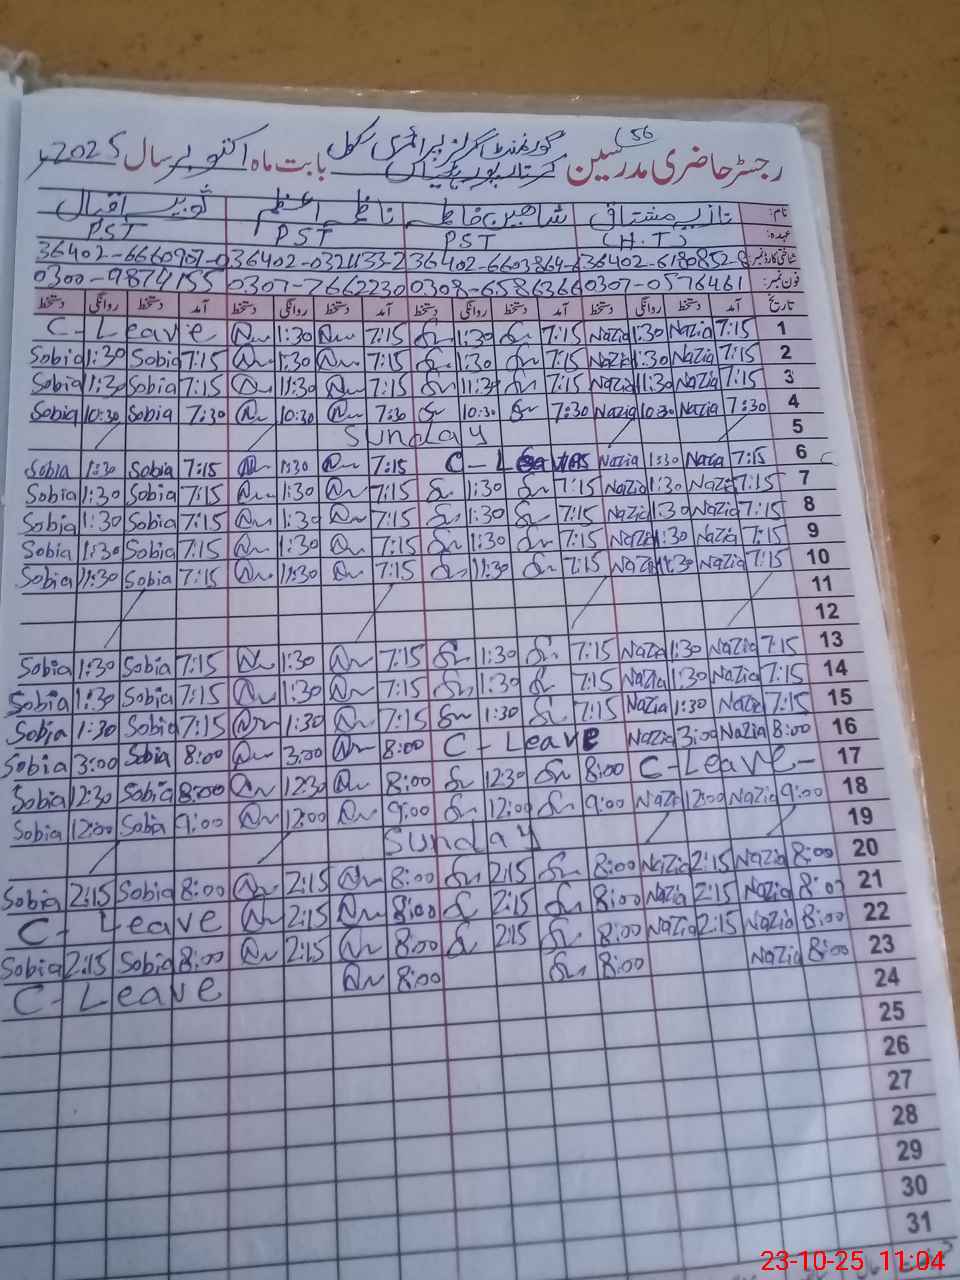 رجسٹر حاضری مدرسین گورنمنٹ گرلز پرائمری سکول بابت ماہ اکتوبر سال 2025ء
56
نام: نازیہ مشتاق شاہین فاطمہ ناظمہ اعظم ثوبیہ اقبال
عہدہ: (H.T) PST PST PST
شناختی کارڈ نمبر: 36402-6180852-8 36402-6603864-6 36402-0321133-2 36402-6660907-0
فون نمبر: 0307-0576461 0308-6586366 0307-7662230 0300-9874155
تاریخ آمد دستخط روانگی دستخط آمد دستخط روانگی دستخط آمد دستخط روانگی دستخط آمد دستخط روانگی دستخط
1 7:15 Nazia 1:30 Nazia 7:15 1:30 7:15 1:30 C-Leave
2 7:15 Nazia 1:30 Nazia 7:15 1:30 7:15 1:30 7:15 Sobia 1:30 Sobia
3 7:15 Nazia 11:30 Nazia 7:15 11:30 7:15 11:30 7:15 Sobia 11:30 Sobia
4 7:30 Nazia 10:30 Nazia 7:30 10:30 7:30 10:30 7:30 Sobia 10:30 Sobia
5 Sunday
6 7:15 Nazia 1:30 Nazia C-Leave 7:15 1:30 7:15 Sobia 1:30 Sobia
7 7:15 Nazia 1:30 Nazia 7:15 1:30 7:15 1:30 7:15 Sobia 1:30 Sobia
8 7:15 Nazia 1:30 Nazia 7:15 1:30 7:15 1:30 7:15 Sobia 1:30 Sobia
9 7:15 Nazia 1:30 Nazia 7:15 1:30 7:15 1:30 7:15 Sobia 1:30 Sobia
10 7:15 Nazia 11:30 Nazia 7:15 11:30 7:15 11:30 7:15 Sobia 11:30 Sobia
11
12
13 7:15 Nazia 1:30 Nazia 7:15 1:30 7:15 1:30 7:15 Sobia 1:30 Sobia
14 7:15 Nazia 1:30 Nazia 7:15 1:30 7:15 1:30 7:15 Sobia 1:30 Sobia
15 7:15 Nazia 1:30 Nazia 7:15 1:30 7:15 1:30 7:15 Sobia 1:30 Sobia
16 8:00 Nazia 3:00 Nazia C-Leave 8:00 3:00 8:00 Sobia 3:00 Sobia
17 C-Leave- 8:00 12:30 8:00 12:30 8:00 Sobia 12:30 Sobia
18 9:00 Nazia 12:00 Nazia 9:00 12:00 9:00 12:00 9:00 Sobia 12:00 Sobia
19 Sunday
20 8:00 Nazia 2:15 Nazia 8:00 2:15 8:00 2:15 8:00 Sobia 2:15 Sobia
21 8:00 Nazia 2:15 Nazia 8:00 2:15 8:00 2:15 C-Leave
22 8:00 Nazia 2:15 Nazia 8:00 2:15 8:00 2:15 8:00 Sobia 2:15 Sobia
23 8:00 Nazia 8:00 8:00 C-Leave
24
25
26
27
28
29
30
31
23-10-25 11:04